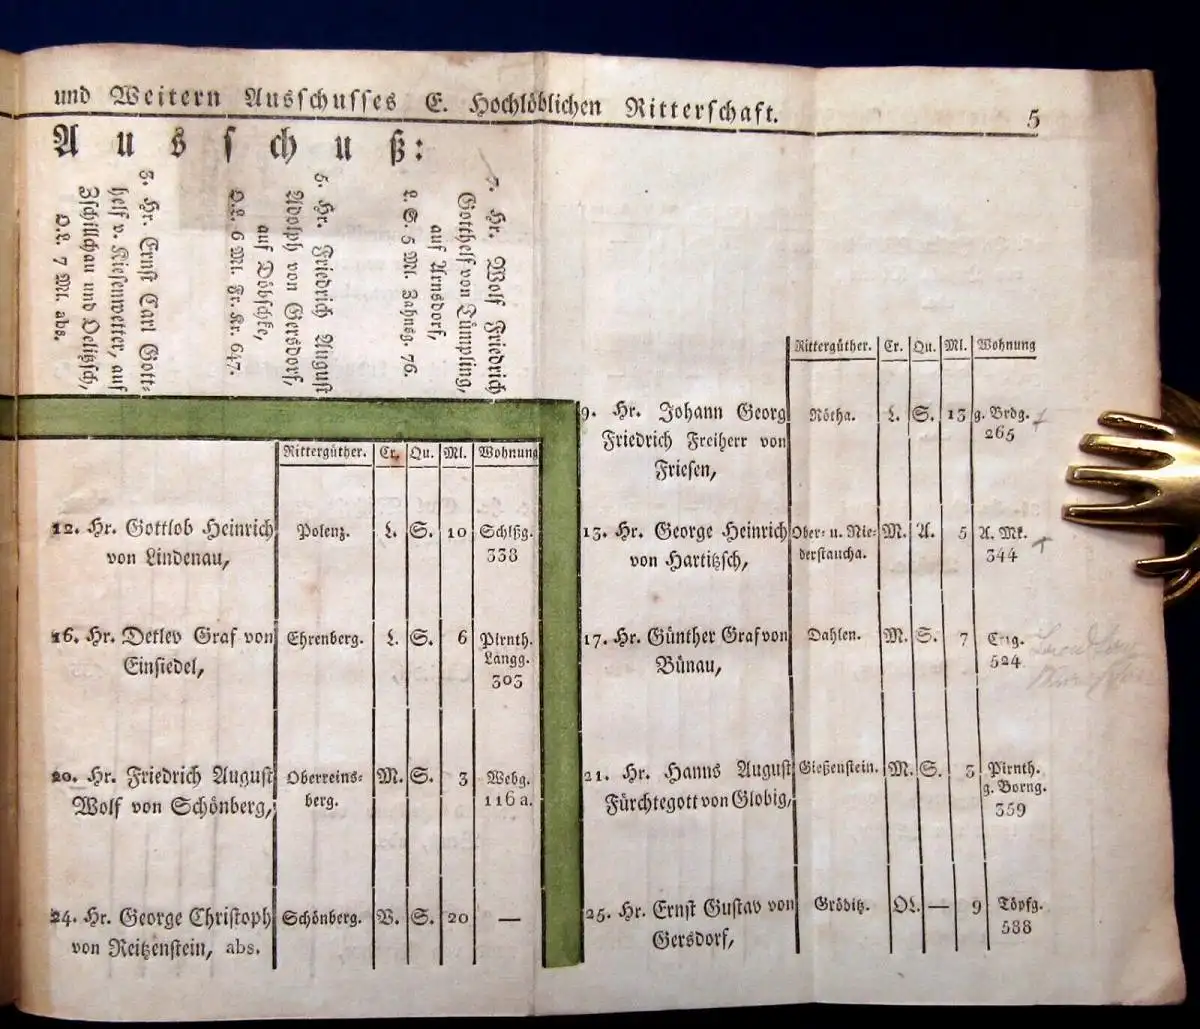 und Weitern Ausschusses E. Hochlöblichen Ritterschaft. 5
Ausschuß:
3. Hr. Ernst Carl Gott-
helf v. Kiesenwetter, auf
Zschillchau und Oelitzsch,
O.L. 7 Ml. abs.
5. Hr. Friedrich August
Adolph von Gersdorf,
auf Döbschke,
O.L. 6 Ml. Fr. Kr. 647.
7. Hr. Wolf Friedrich
Gotthelf von Tümpling,
auf Arnsdorf,
L. S. 5 Ml. Zahnsg. 76.
Rittergüther. Cr. Qu. Ml. Wohnung
12. Hr. Gottlob Heinrich Polenz. L. S. 10 Schlßg.
von Lindenau, 338
16. Hr. Detlev Graf von Ehrenberg. L. S. 6 Pirnth.
Einsiedel, Langg.
303
20. Hr. Friedrich August Oberreins- M. S. 3 Webg.
Wolf von Schönberg, berg. 116 a.
24. Hr. George Christoph Schönberg. V. S. 20 —
von Reitzenstein, abs.
Rittergüther. Cr. Qu. Ml. Wohnung
9. Hr. Johann Georg Rötha. L. S. 13 g. Brdg.
Friedrich Freiherr von 265
Friesen,
13. Hr. George Heinrich Ober- u. Nie- M. A. 5 A. Mk.
von Hartitzsch, derstaucha. 344
17. Hr. Günther Graf von Dahlen. M. S. 7
Bünau, 524
21. Hr. Hanns August Gießenstein. M. S. 3 Pirnth.
Fürchtegott von Globig, g. Borng.
359
25. Hr. Ernst Gustav von Gröditz. OL. — 9 Töpfg.
Gersdorf, 588